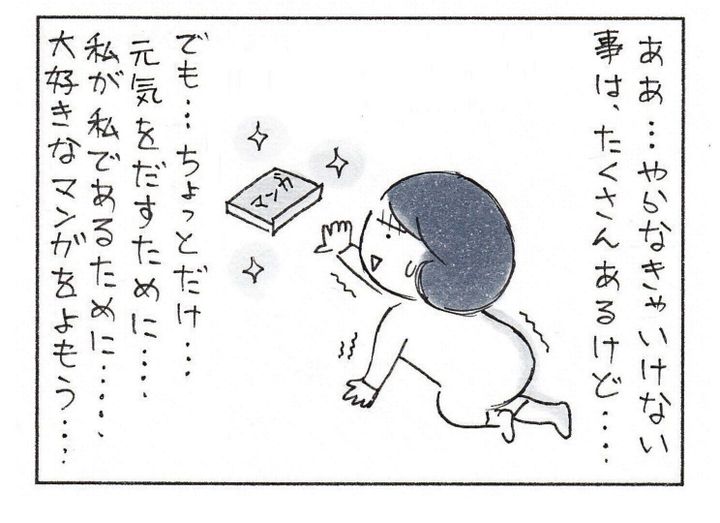 ああ…やらなきゃいけない
事は、たくさんあるけど‥‥
マンガ
でも…ちょっとだけ…
元気をだすために‥‥、
私が私であるために‥‥‥、
大好きなマンガをよもう‥‥